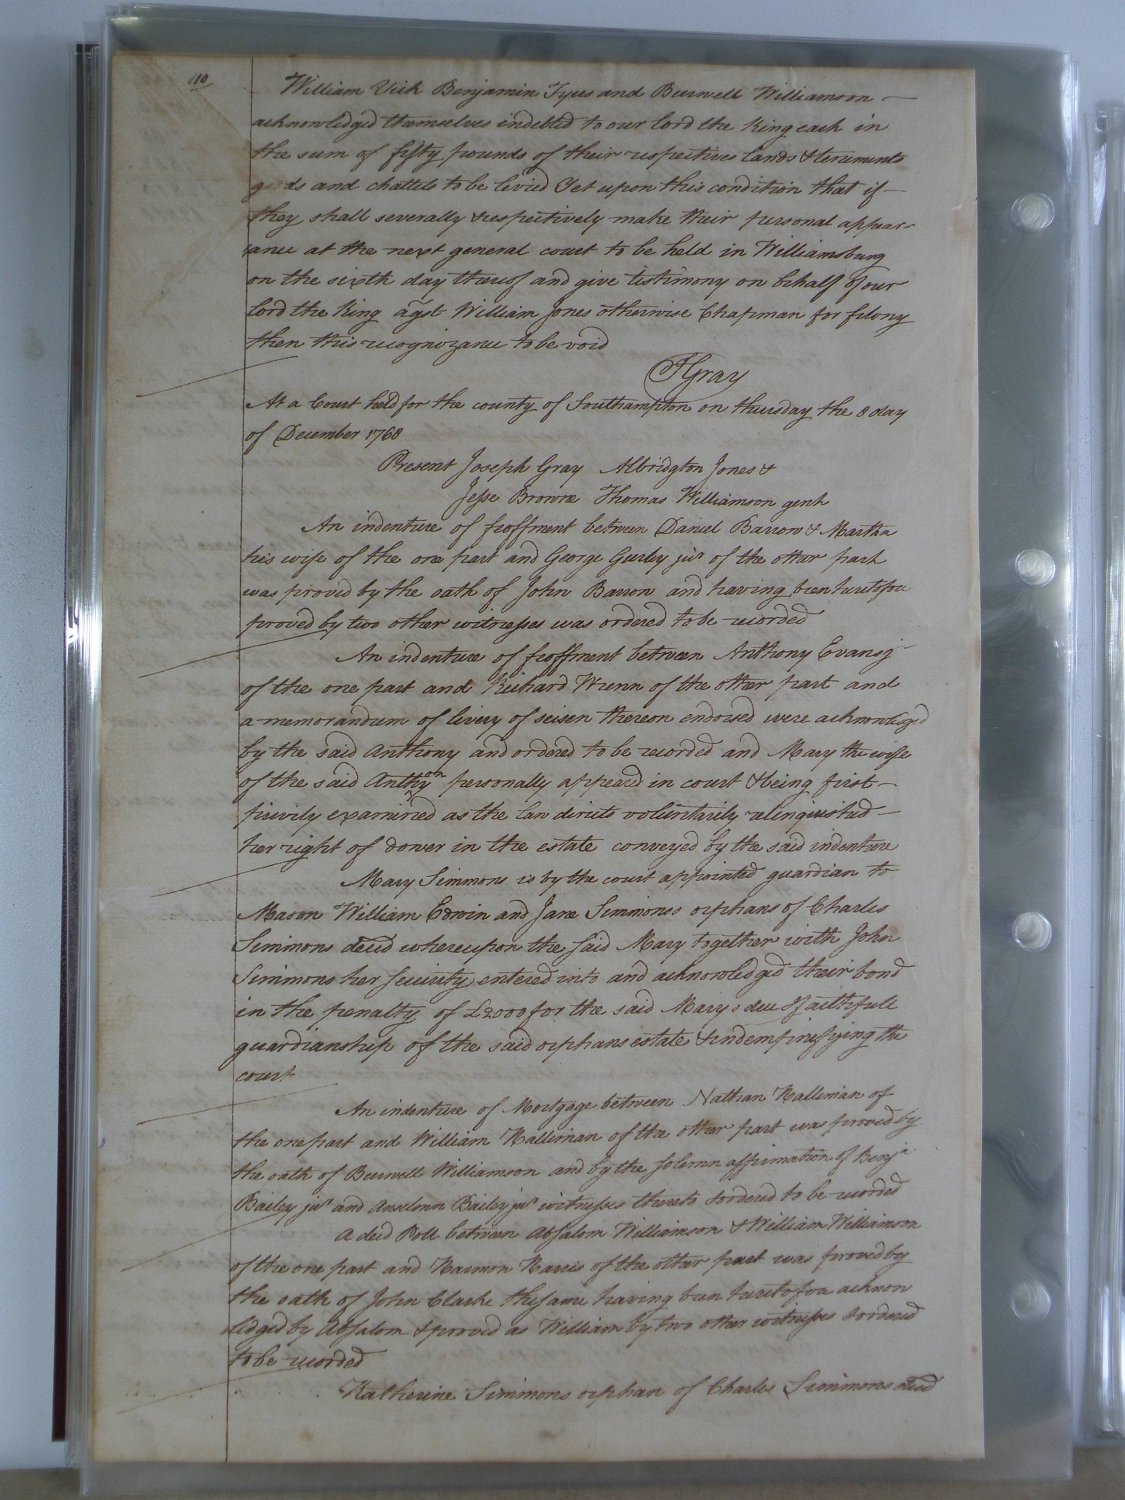 110
William Vick Benjamin Tyus and Burwell Williamson
acknowledged themselves indebted to our lord the King each in
the sum of fifty pounds of their respective lands & tenements
goods and chattels to be levied Yet upon this condition that if
they shall severally & respectively make their personal appear-
ance at the next general court to be held in Williamsburg
on the sixth day thereof and give testimony on behalf of our
lord the King agst William Jones otherwise Chapman for felony
then this recognizance to be void
J Gray
At a Court held for the county of Southampton on thursday the 8 day
of December 1768
Present Joseph Gray Albridgton Jones &
Jesse Browne Thomas Williamson gent
An indenture of feoffment between Daniel Barrow & Martha
his wife of the one part and George Gurley junr of the other part
was proved by the oath of John Barrow and having been heretofore
proved by two other witnesses was ordered to be recorded
An indenture of feoffment between Anthony Evans
of the one part and Richard Wrenn of the other part and
a memorandum of livery of seisen thereon endorsed were acknowledged
by the said Anthony and ordered to be recorded and Mary the wife
of the said Anthony personally appeared in court & being first
privily examined as the law directs voluntarily relinquished
her right of dower in the estate conveyed by the said indenture
Mary Simmons is by the court appointed guardian to
Mason William Edwin and Jane Simmons orphans of Charles
Simmons decd whereupon the said Mary together with John
Simmons her security entered into and acknowledged their bond
in the penalty of £2000 for the said Marys due & faithfull
guardianship of the said orphans estate & indempnifying the
court
An indenture of Mortgage between Nathan Halleman of
the one part and William Halleman of the other part was proved by
the oath of Burwell Williamson and by the solemn affirmation of Benja
Bailey junr and Anselmn Bailey junr witnesses thereto & ordered to be recorded
A deed Poll between Absalom Williamson & William Williamson
of the one part and Harmon Harris of the other part was proved by
the oath of John Clarke the same having been heretofore acknow
ledged by Absalom & proved as William by two other witnesses & ordered
to be recorded
Katherine Simmons orphan of Charles Simmons decd